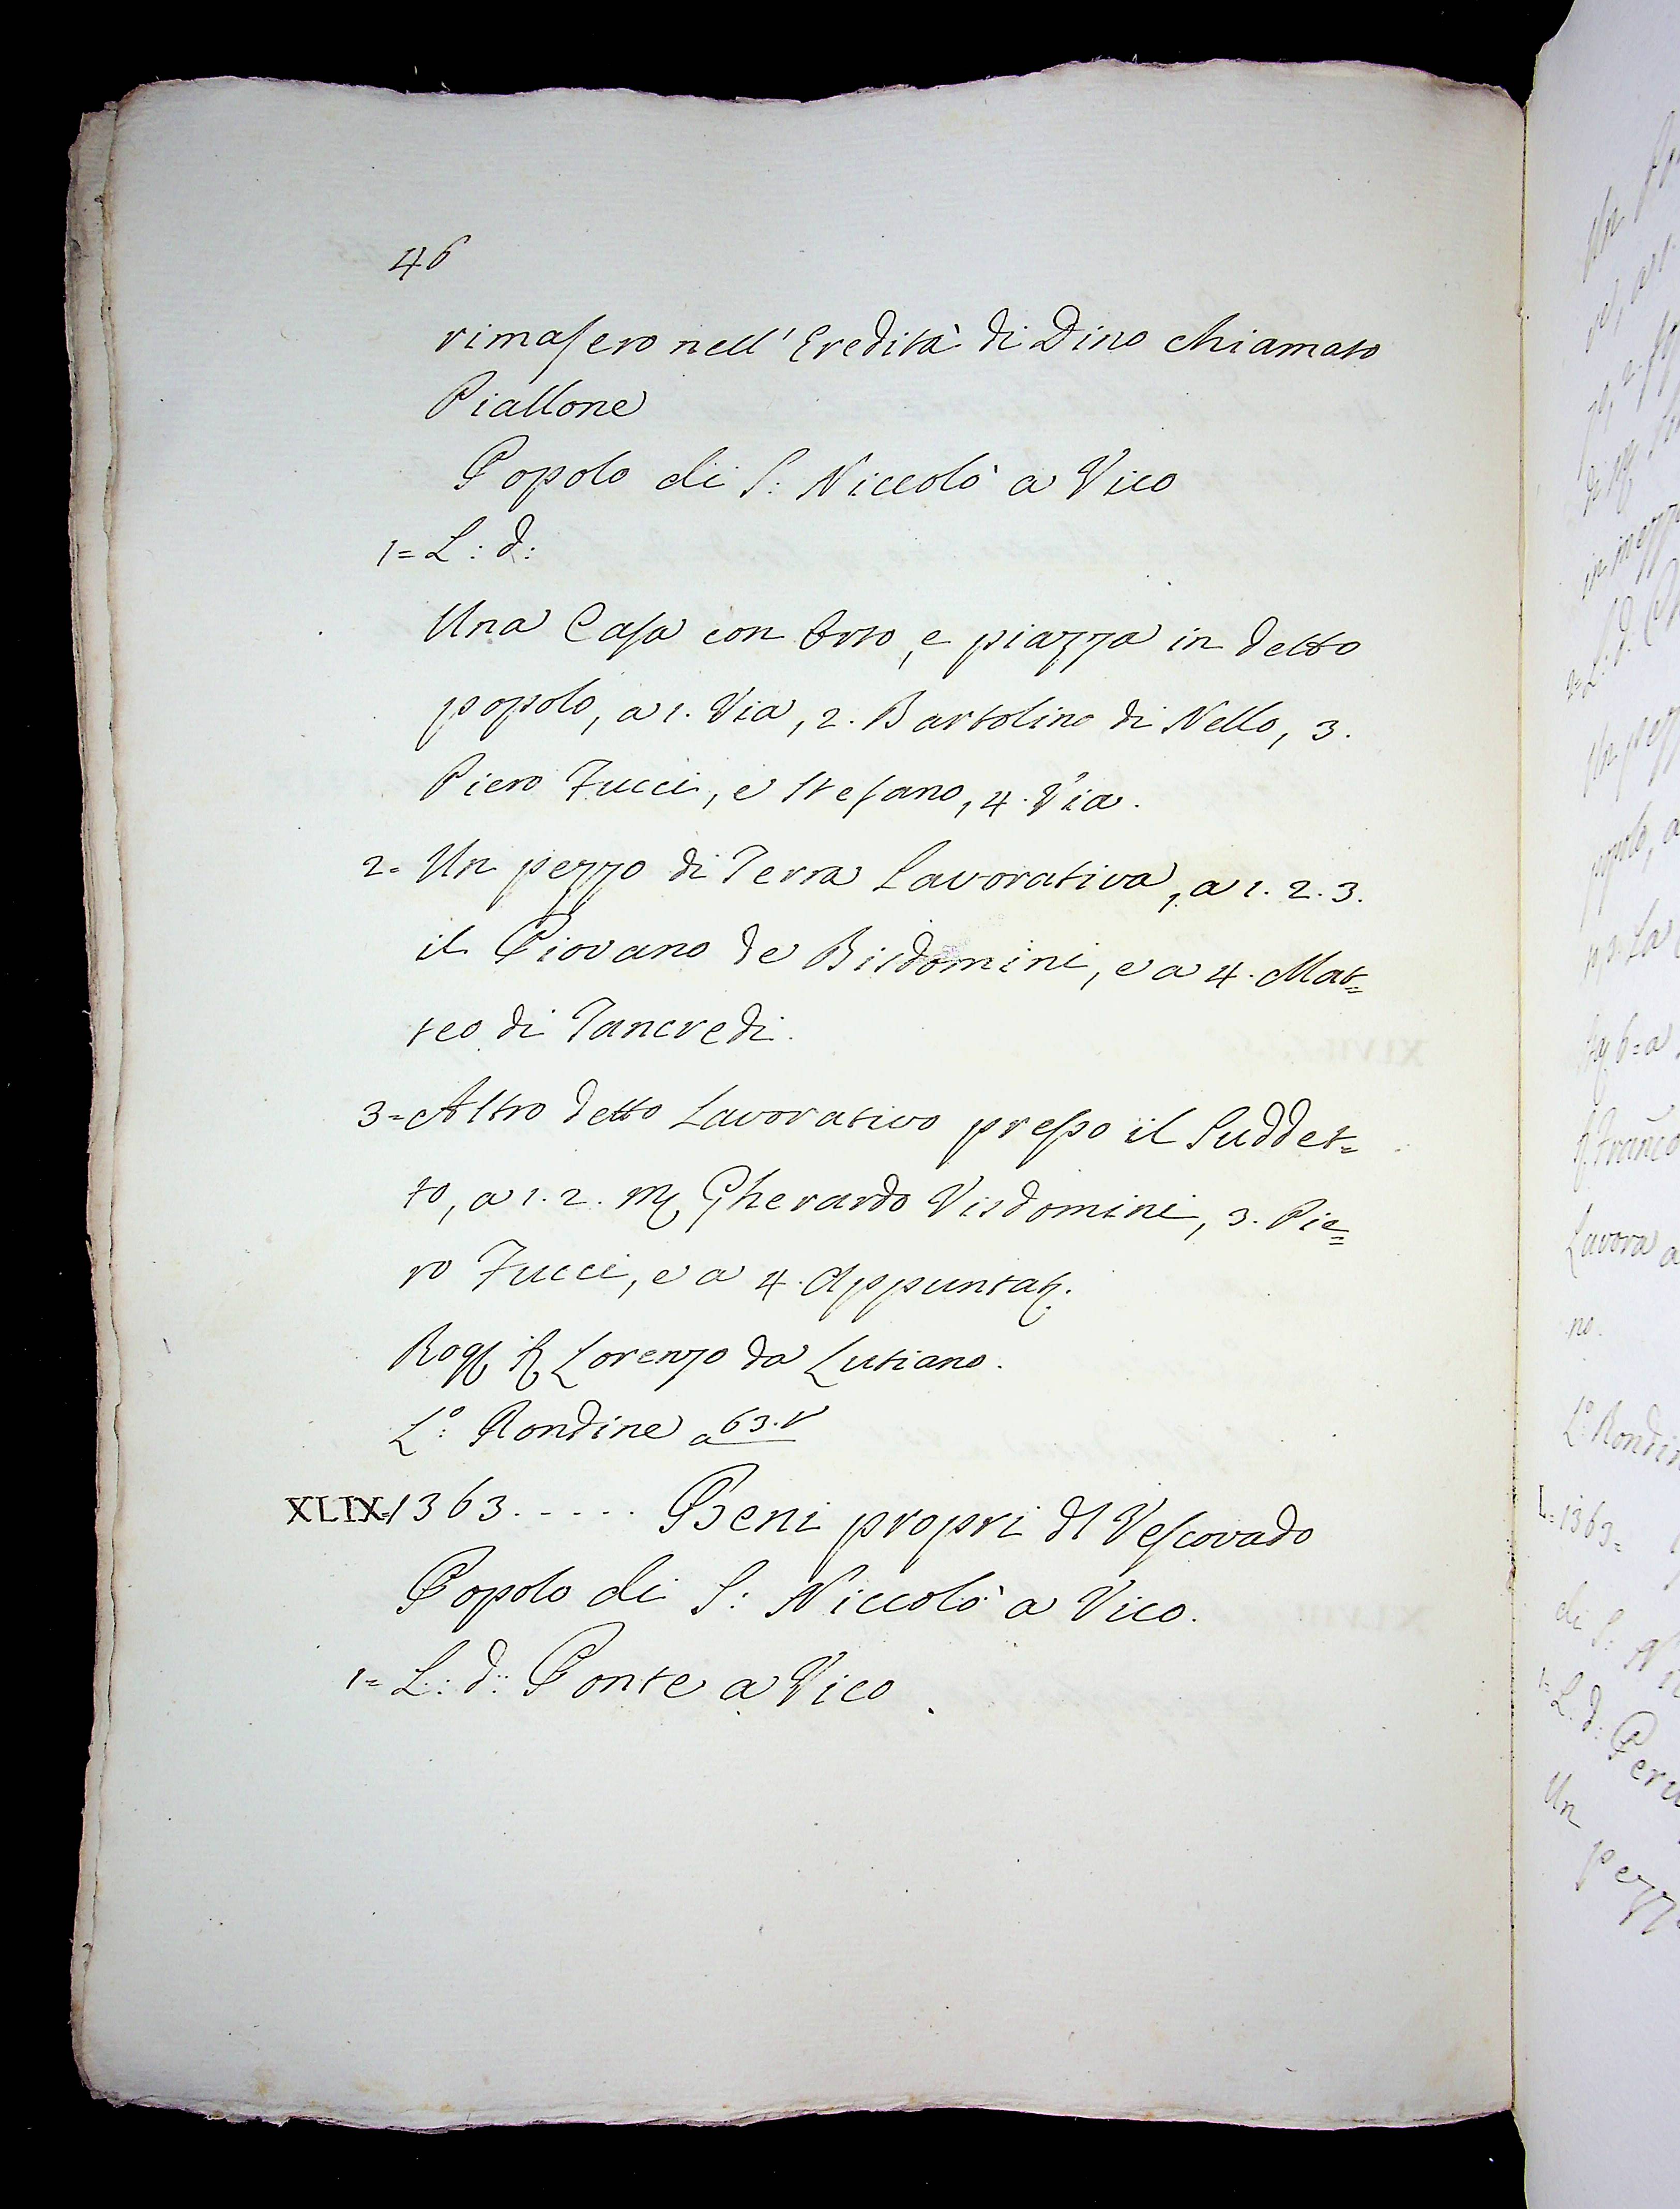 46
rimasero nell' Eredità di Dino chiamato
Piallone
Popolo di S: Niccolò a Vico
1= L: d:
Una Casa con Orto, e piazza in detto
popolo, a 1. Via, 2. Bartolino di Nello, 3.
Piero Fucci, e Stefano, 4. Via.
2= Un pezzo di Terra Lavorativa, a 1. 2. 3.
il Piovano de Bisdomini, e a 4. Mat=
teo di Tancredi.
3= Altro detto Lavorativo presso il Suddet=
to, a 1. 2. Mr Gherardo Visdomini, 3. Pie=
ro Fucci, e a 4. Appuntat.
Rog. Sr Lorenzo da Lutiano.
L.º Rondine a 63. v
XLIX=1363..... Beni propri dl Vescovado
Popolo di S: Niccolò a Vico.
1= L: d: Ponte a Vico.